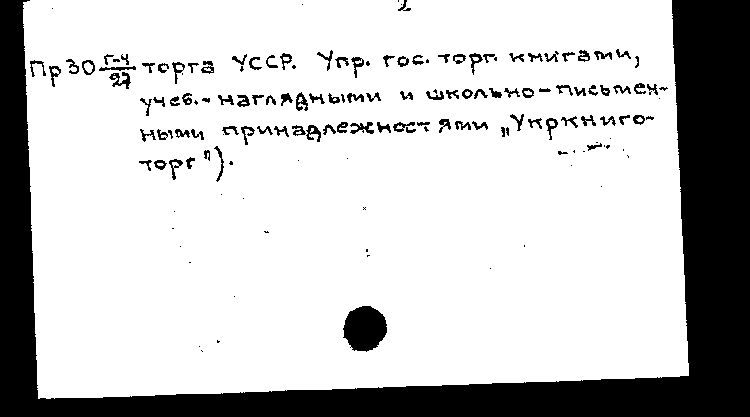 2
Пр30 Г-4/27 торга УССР. Упр. гос. торг. книгами,
учеб.-наглядными и школьно-письмен-
ными принадлежностями „Укркниго-
торг").